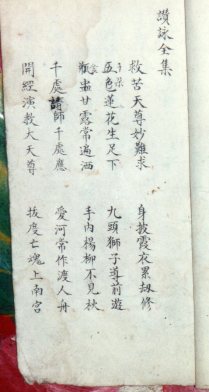 讚詠全集
救苦天尊妙難求 身披霞衣累刼修
五色蓮花生足下 九頭獅子導前遊
千朵
瓶 甘露常遍洒 手內楊柳不見秋
千處請師千處應 愛河常作渡人舟
開經演教大天尊 拔度亡魂上南宮